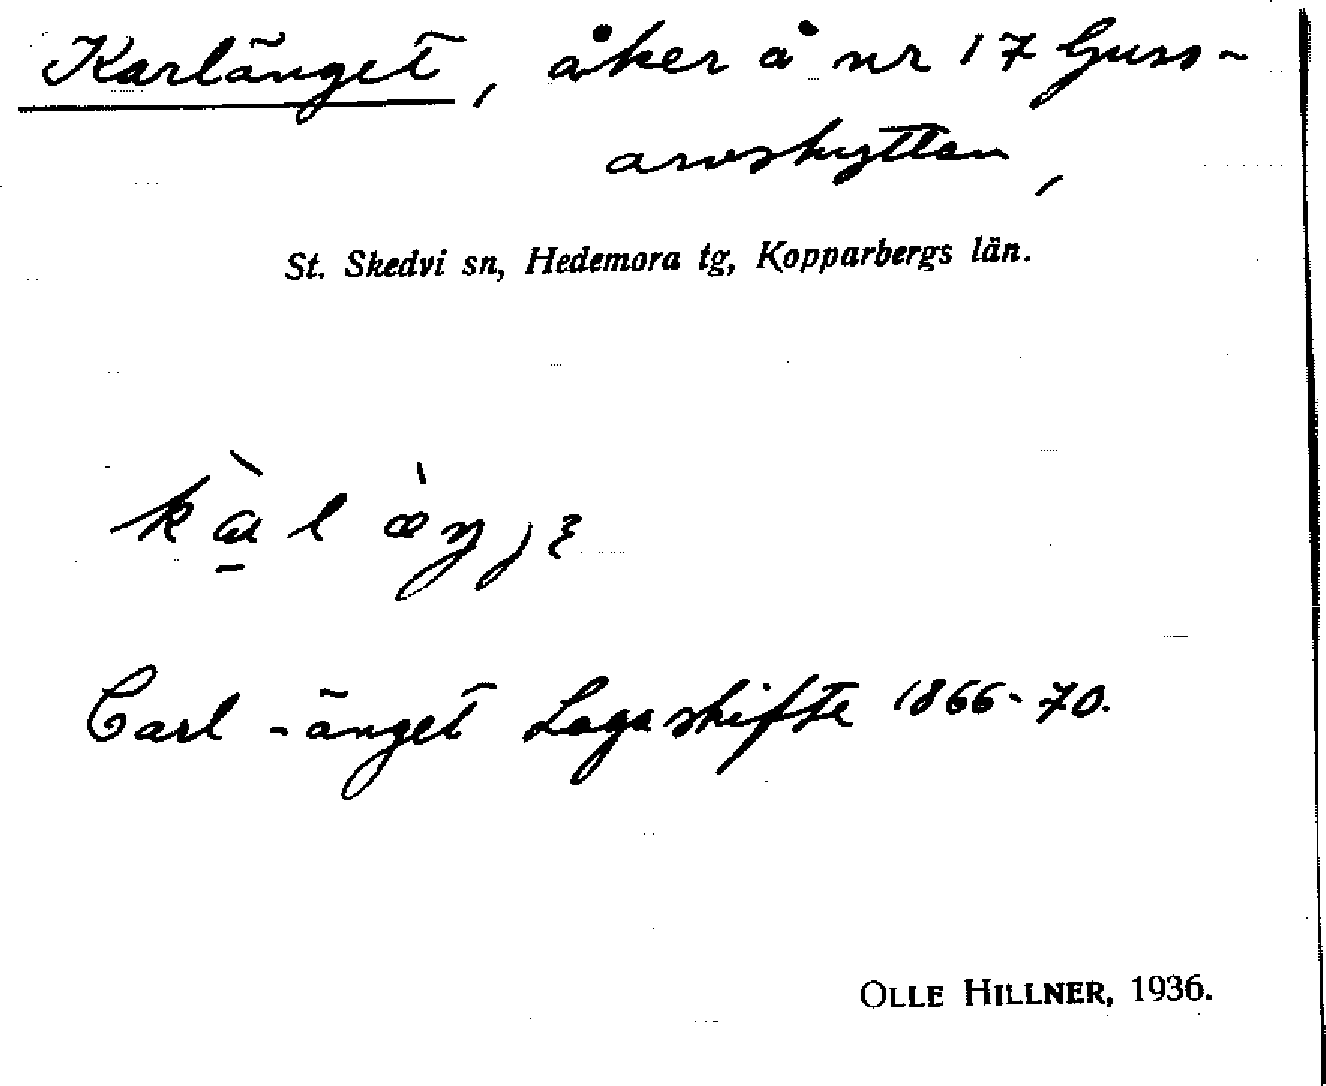 Karlänget, åker å nr 17 Guss-
arvshyttan,
St. Skedvi sn, Hedemora tg, Kopparbergs län.
kàlæ̀ŋjɛ
Carl-änget Laga skifte 1866-70.
OLLE HILLNER, 1936.